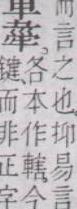 而言之也抑易言
舝
各本作轄今
鍵而非正字